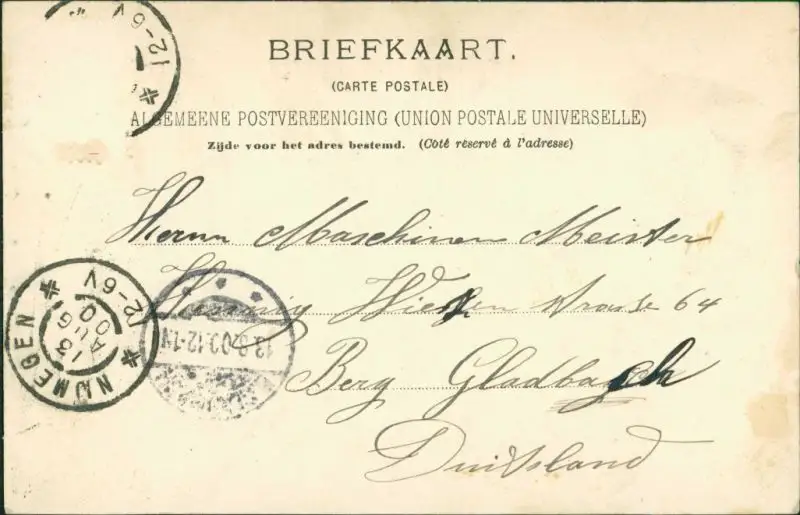 BRIEFKAART.
(CARTE POSTALE)
ALGEMEENE POSTVEREENIGING (UNION POSTALE UNIVERSELLE)
Zijde voor het adres bestemd. (Côté réservé à l'adresse)
12-6V
Herrn Maschinen Meister
Wiesen strasse 64
Berg Gladbach
Duitsland
NIJMEGEN
12-6V
13
AUG
00
13.8.00.12-1N